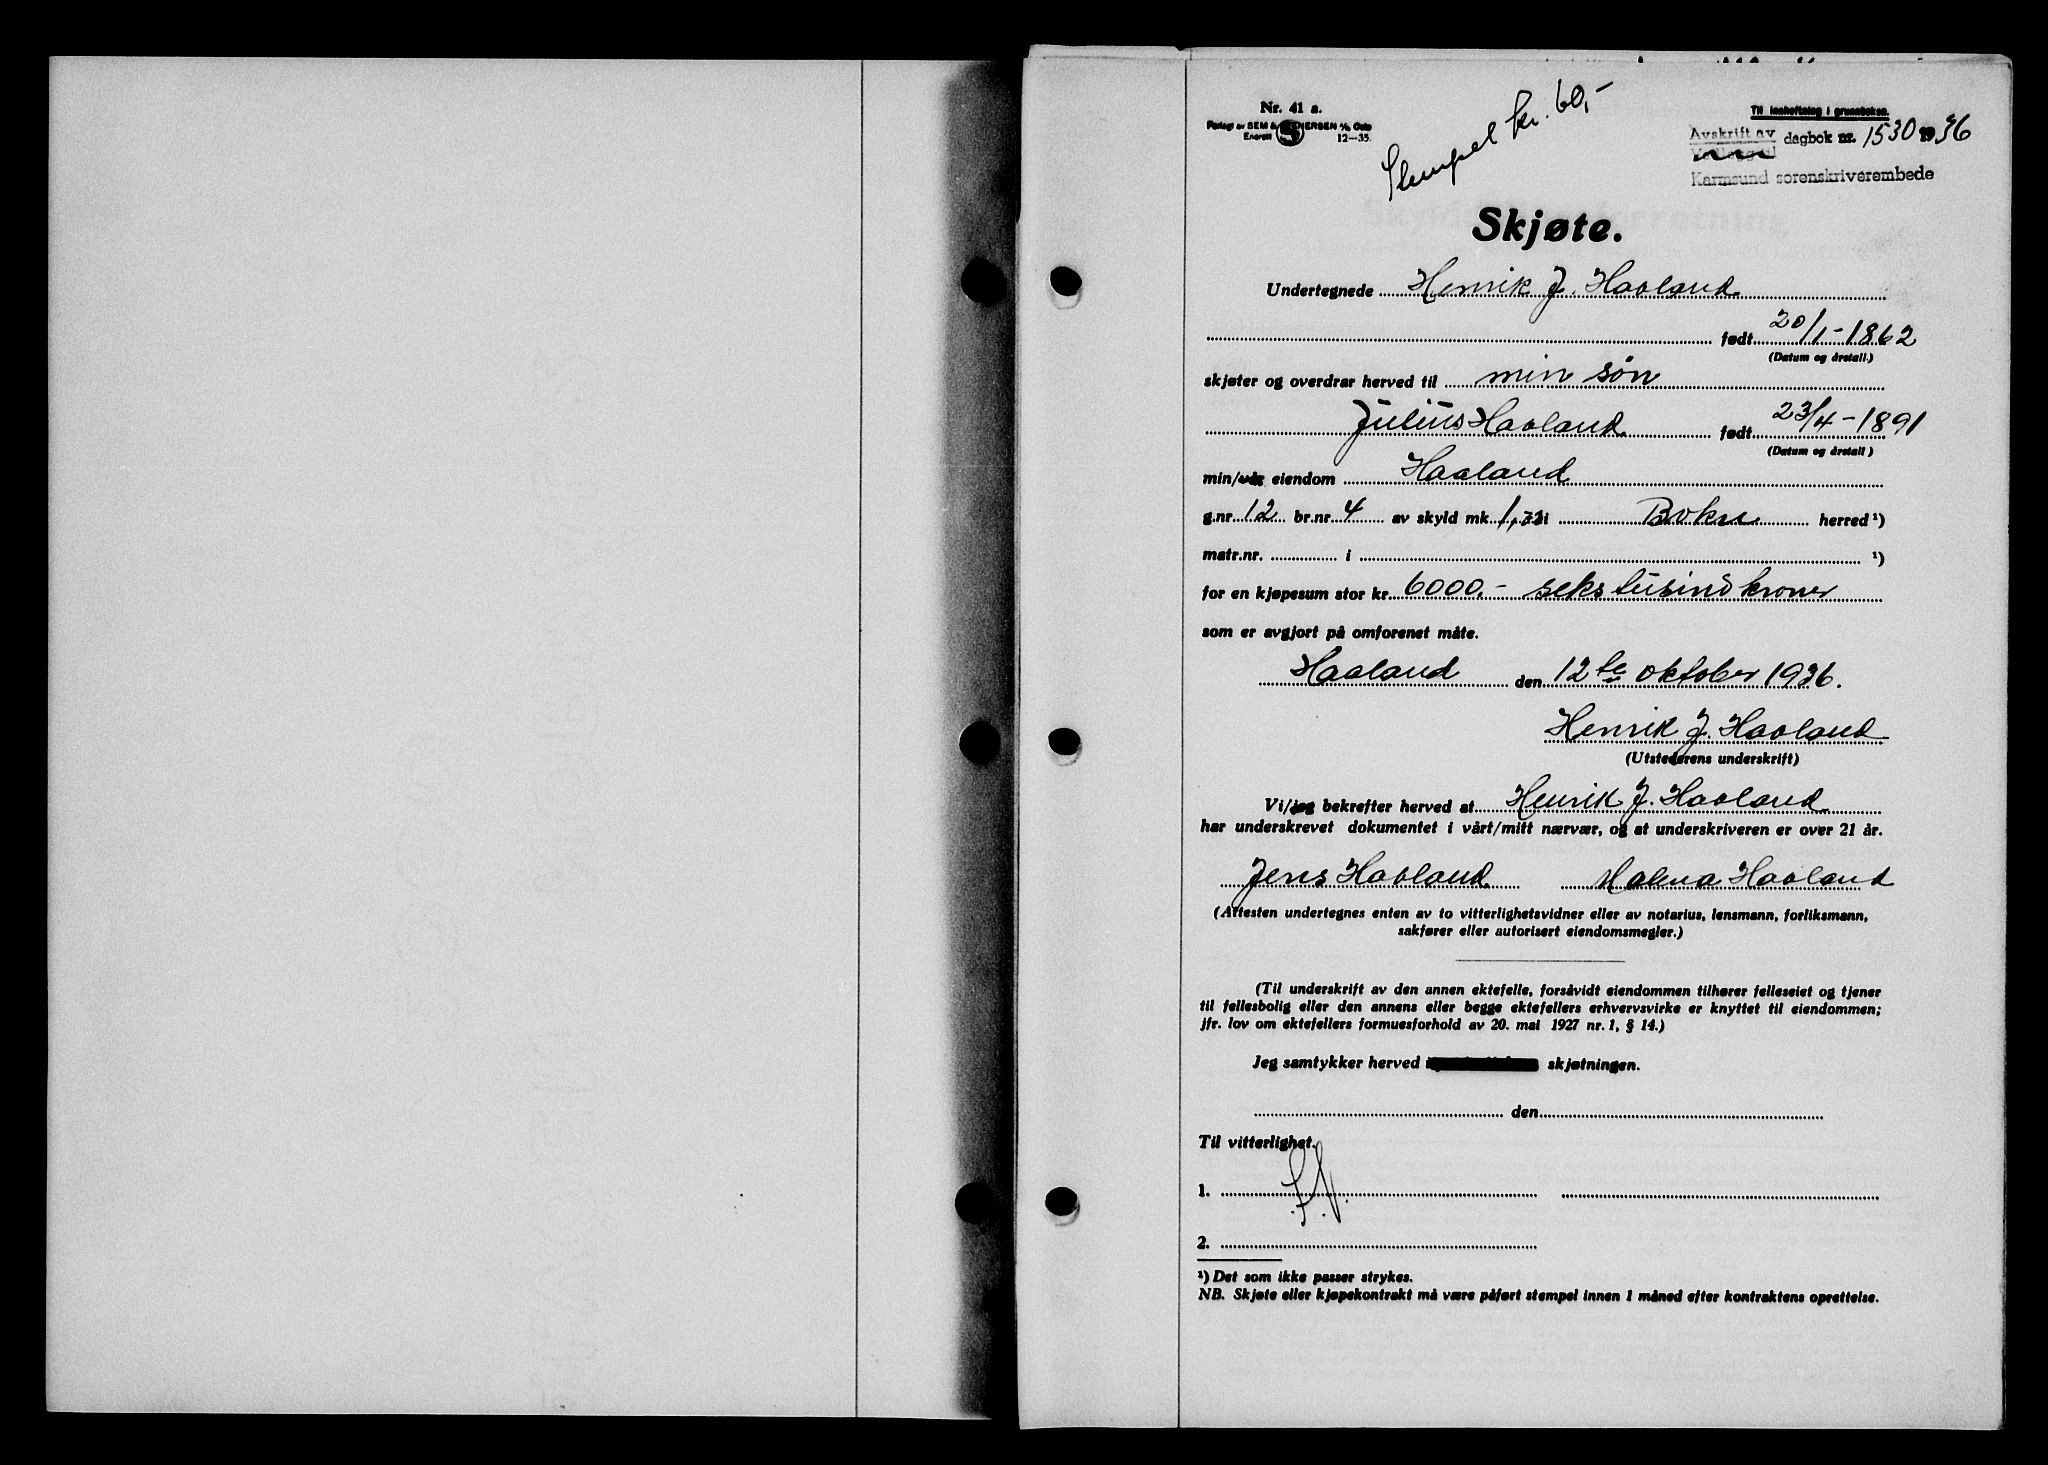 Nr. 41 a.
Forlagt av SEM & STENERSEN A/S Oslo
Enerett 12—35.
Stempel kr. 60,-
Til innheftning i grunnboken.
Avskrift av
dagbok nr. 1530 1936
Karmsund sorenskriverembede
Skjøte.
Undertegnede Henrik J. Haaland
født 20/1-1862
(Datum og årstall.)
skjøter og overdrar herved til min søn
Julius Haaland født 23/4-1891
(Datum og årstall)
min/vår eiendom Haaland
g.nr. 12 br.nr. 4 av skyld mk. i Bokn herred ¹)
matr.nr. i ¹)
for en kjøpesum stor kr. 6000,- seks tusind kroner
som er avgjort på omforenet måte.
Haaland den 12te oktober 1936.
Henrik J. Haaland
(Utstederens underskrift)
Vi/jeg bekrefter herved at Henrik J. Haaland
har underskrevet dokumentet i vårt/mitt nærvær, og at underskriveren er over 21 år.
Jens Haaland Malena Haaland
(Attesten undertegnes enten av to vitterlighetsvidner eller av notarius, lensmann, forliksmann,
sakfører eller autorisert eiendomsmegler.)
(Til underskrift av den annen ektefelle, forsåvidt eiendommen tilhører felleseiet og tjener
til fellesbolig eller den annens eller begge ektefellers erhvervsvirke er knyttet til eiendommen;
jfr. lov om ektefellers formuesforhold av 20. mai 1927 nr. 1, § 14.)
Jeg samtykker herved skjøtningen.
den
Til vitterlighet.
1.
2.
¹) Det som ikke passer strykes.
NB. Skjøte eller kjøpekontrakt må være påført stempel innen 1 måned efter kontraktens oprettelse.